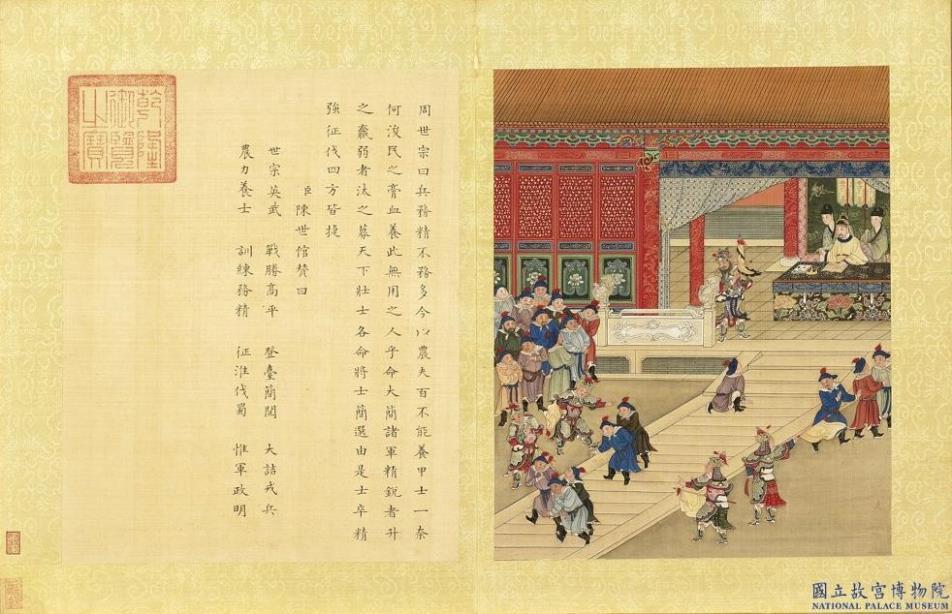 周世宗曰兵務精不務多今以農夫百不能養甲士一奈
何浚民之膏血養此無用之人乎命大簡諸軍精銳者升
之羸弱者汰之募天下壯士各命將士簡選由是士卒精
強征伐四方皆捷
臣陳世信贊曰
世宗英武 戰勝高平 登臺簡閱 大詰戎兵
農力養士 訓練務精 征淮伐蜀 惟軍政明
乾隆御覽之寶
國立故宮博物院
NATIONAL PALACE MUSEUM